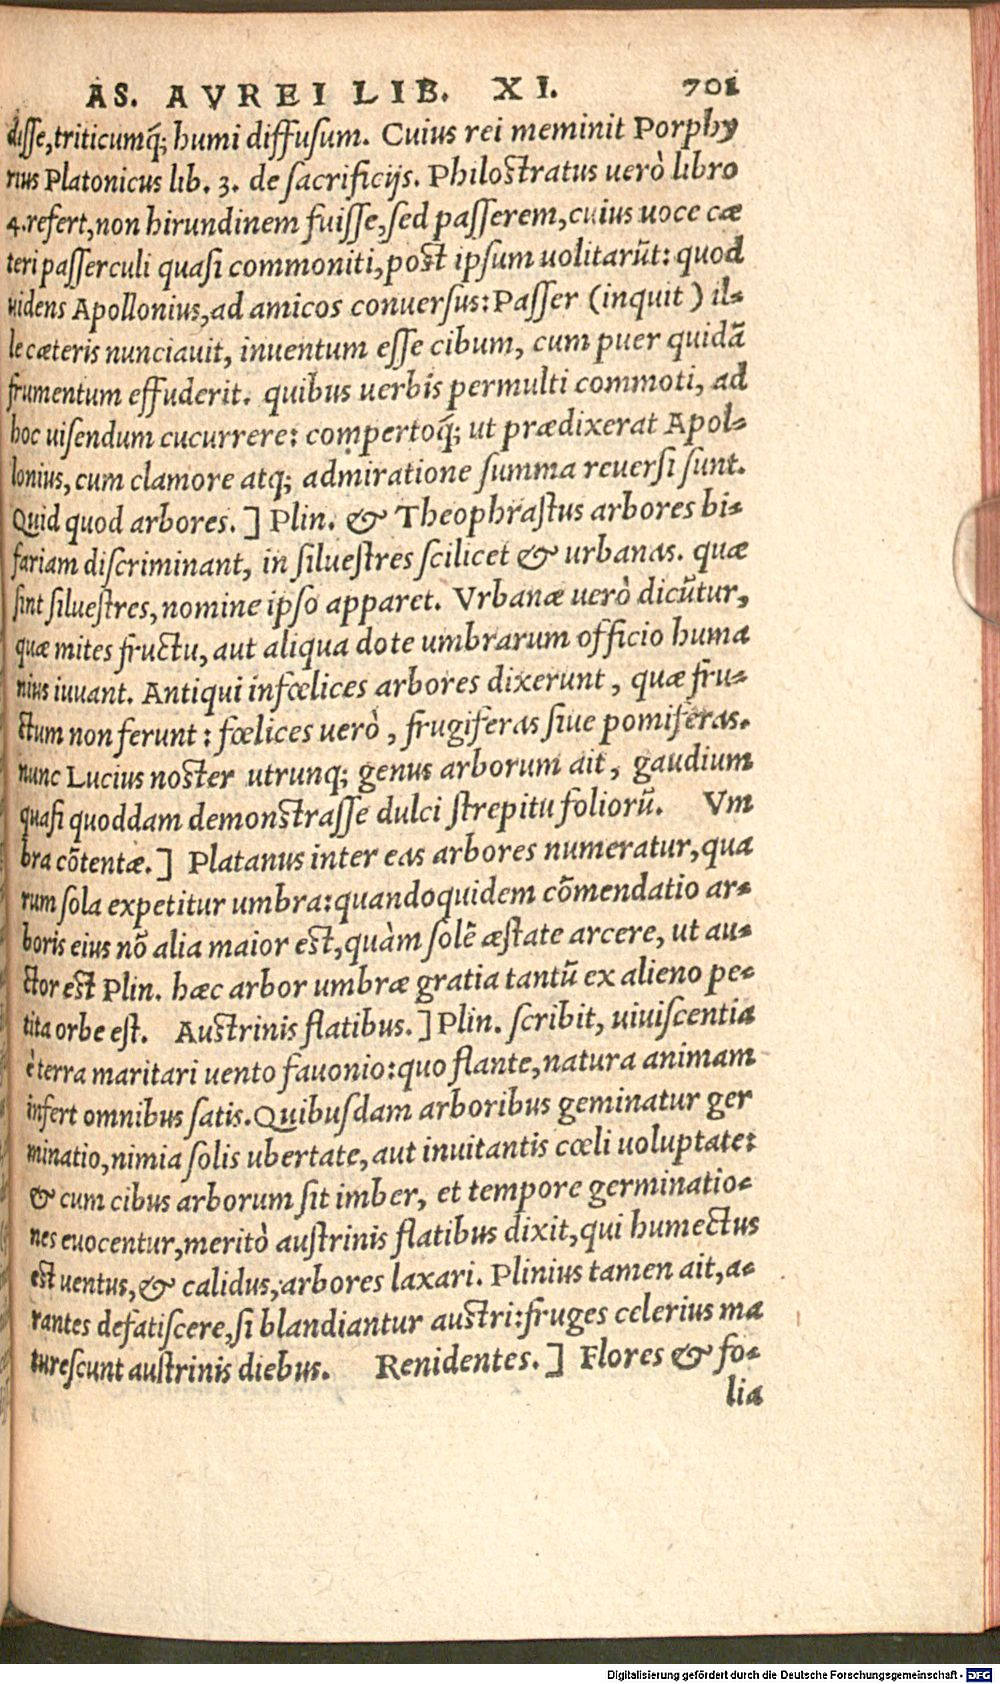 AS. AVREI LIB. XI. 701
disse, triticumq́; humi diffusum. Cuius rei meminit Porphy
rius Platonicus lib. 3. de sacrificijs. Philostratus uerò libro
4. refert, non hirundinem fuisse, sed passerem, cuius uoce cæ
teri passerculi quasi commoniti, post ipsum uolitarūt: quod
uidens Apollonius, ad amicos conuersus: Passer (inquit) il-
le cæteris nunciauit, inuentum esse cibum, cum puer quidā
frumentum effuderit. quibus uerbis permulti commoti, ad
hoc uisendum cucurrere: compertoq́; ut prædixerat Apol-
lonius, cum clamore atq; admiratione summa reuersi sunt.
Quid quod arbores.] Plin. & Theophrastus arbores bi-
fariam discriminant, in siluestres scilicet & urbanas. quæ
sint siluestres, nomine ipso apparet. Vrbanæ uerò dicūtur,
quæ mites fructu, aut aliqua dote umbrarum officio huma
nius iuuant. Antiqui infœlices arbores dixerunt, quæ fru-
ctum non ferunt: fœlices uerò, frugiferas siue pomiferas.
nunc Lucius noster utrunq; genus arborum ait, gaudium
quasi quoddam demonstrasse dulci strepitu foliorū. Vm
bra cōtentæ.] Platanus inter eas arbores numeratur, qua
rum sola expetitur umbra: quandoquidem cōmendatio ar-
boris eius nō alia maior est, quàm solē æstate arcere, ut au-
ctor est Plin. hæc arbor umbræ gratia tantū ex alieno pe-
tita orbe est. Austrinis flatibus.] Plin. scribit, uiuiscentia
è terra maritari uento fauonio: quo flante, natura animam
infert omnibus satis. Quibusdam arboribus geminatur ger
minatio, nimia solis ubertate, aut inuitantis cœli uoluptate:
& cum cibus arborum sit imber, et tempore germinatio-
nes euocentur, meritò austrinis flatibus dixit, qui humectus
est uentus, & calidus, arbores laxari. Plinius tamen ait, a-
rantes defatiscere, si blandiantur austri: fruges celerius ma
turescunt austrinis diebus. Renidentes.] Flores & fo-
lia
Digitalisierung gefördert durch die Deutsche Forschungsgemeinschaft - DFG